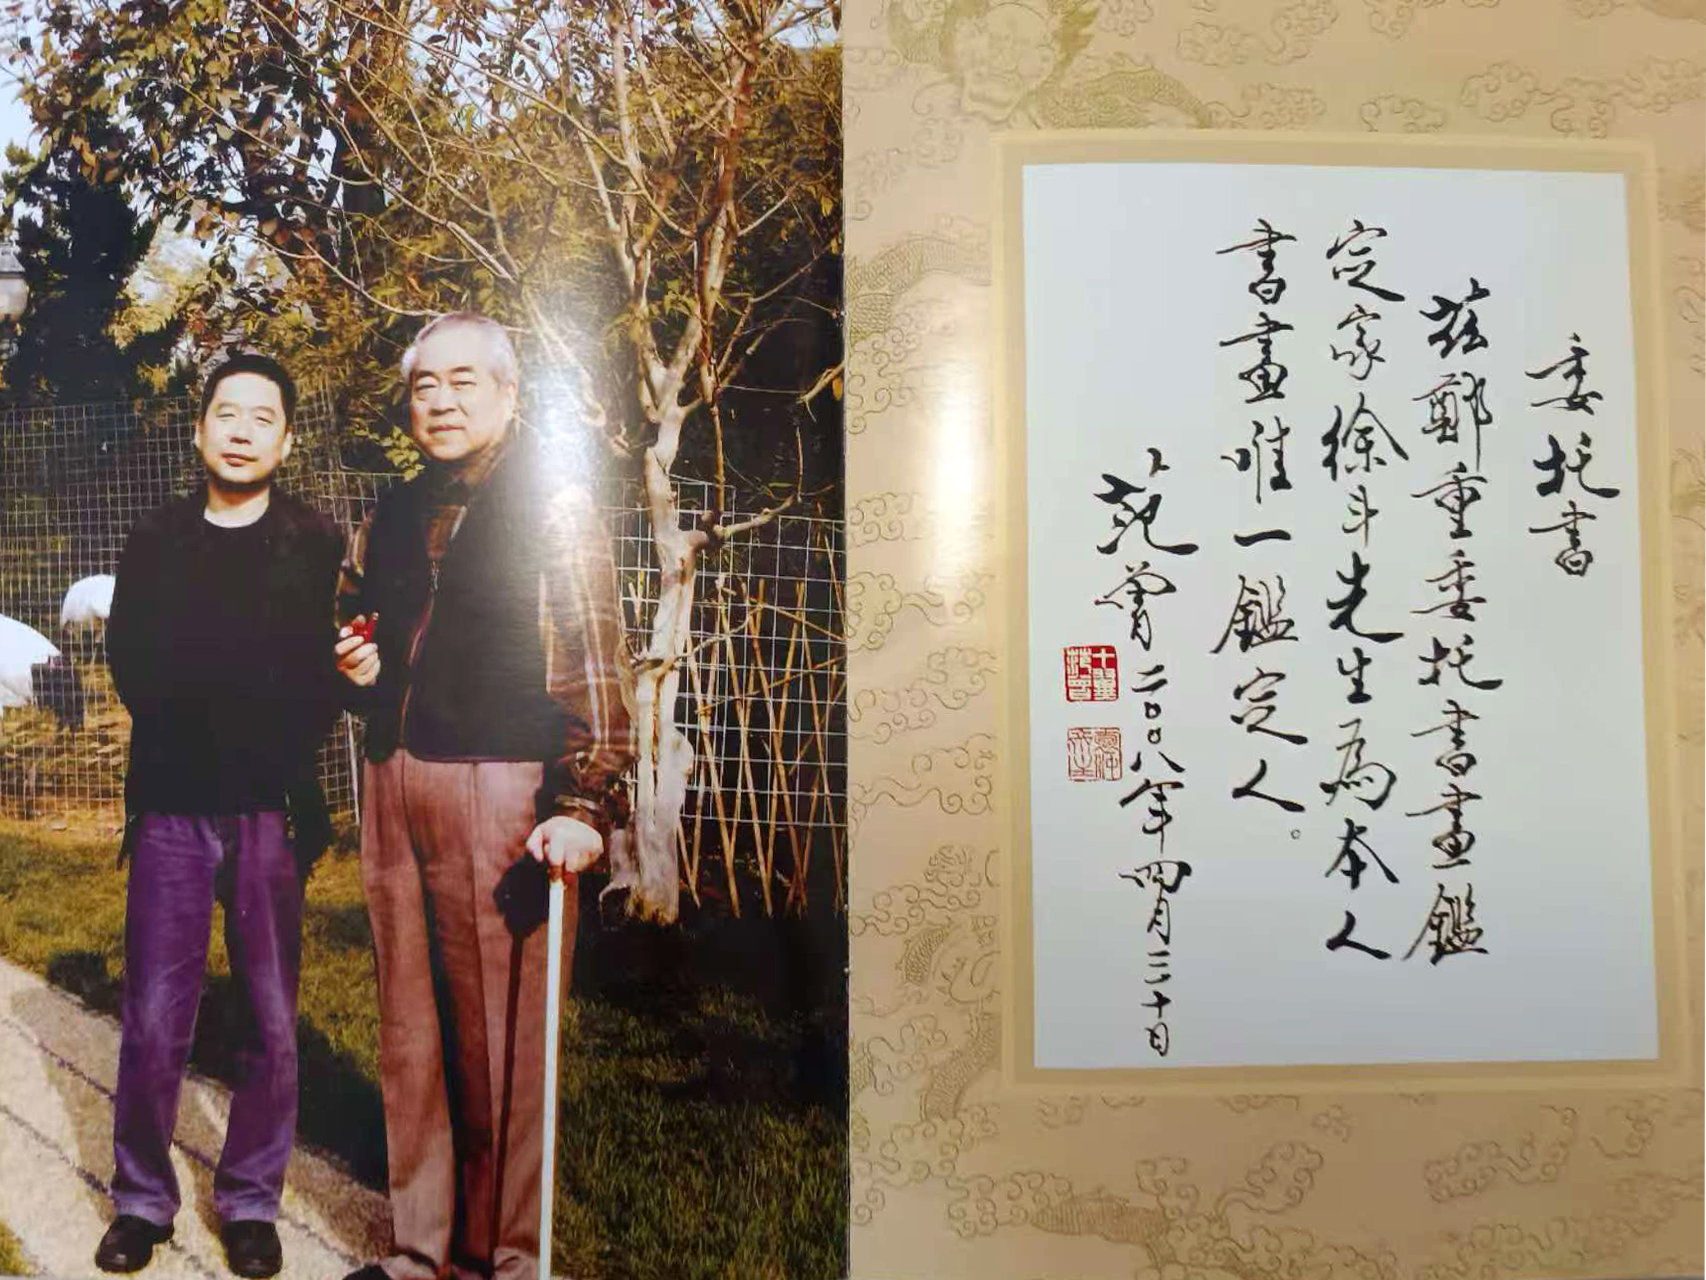 委托书
茲鄭重委托書畫鑑
定家徐斗先生為本人
書畫唯一鑑定人。
范曾二〇〇八年四月二十日